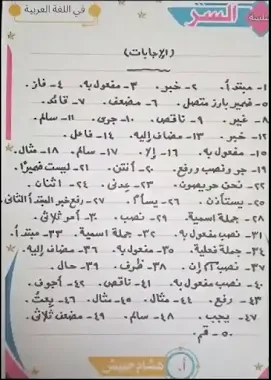 في اللغة العربية
السر
(الإجابات)
١- مبتدأ. ٢- خبر. ٣- مفعول به. ٤- فاز.
٥- ضمير بارز متصل. ٦- مضعف. ٧- قائد.
٨- غير. ٩- ناقص. ١٠- جرى. ١١- سالم.
١٢- خبر. ١٣- مضاف إليه. ١٤- فاعل.
١٥- مفعول به. ١٦- إلا. ١٧- سالم. ١٨- مثال.
١٩- جر ونصب ورفع. ٢٠- أنتن. ٢١- ليست ضميرًا.
٢٢- نحن حريصون. ٢٣- يدنى. ٢٤- اثنان.
٢٥- يستأذن. ٢٦- يسأم. ٢٧- رفع خبر المبتدأ الثانى
٢٨- جملة اسمية. ٢٩- نصب. ٣٠- أمو ثلاثى.
٣١- نصب مفعول به. ٣٢- جملة اسمية. ٣٣- مبتدأ.
٣٤- جملة فعلية. ٣٥- مفعول به. ٣٦- مضاف إليه.
٣٧- نصب إن. ٣٨- ظرف. ٣٩- حال.
٤٠- نصب مفعول به. ٤١- ناقص. ٤٢- أجوف.
٤٣- رفع. ٤٤- مثال. ٤٥- مثال. ٤٦- بعت.
٤٧- يجب. ٤٨- سالم. ٤٩- مضعف ثلاثى.
٥٠- قم.
أ. هشام حبيش